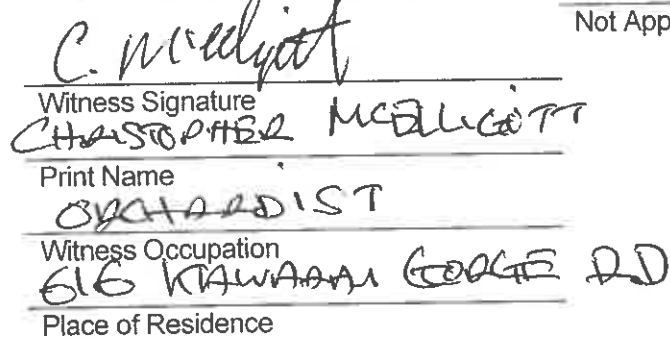 Not App
C. McElligott
Witness Signature
CHRISTOPHER MCELLIGOTT
Print Name
ORCHARDIST
Witness Occupation
616 KAWARAU GORGE RD
Place of Residence